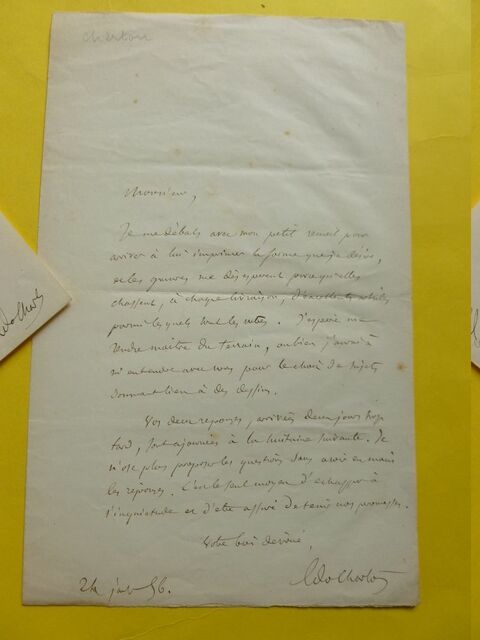 Charton
Monsieur,
Je me débats avec mon petit recueil pour
arriver à lui imprimer la forme que je désire,
et les gravures me désespèrent parce qu'elles
chassent, à chaque livraison, d'excellents articles
parmi lesquels sont les vôtres. J'espère me
rendre maître du terrain, ou bien j'aurai à
m'entendre avec vous pour le choix de sujets
donnant lieu à des dessins.
Vos deux réponses, arrivées deux jours trop
tard, sont ajournées à la huitaine suivante. Je
n'ose plus proposer les questions sans avoir en main
les réponses. C'est le seul moyen d'échapper à
l'inquiétude et d'être assuré de tenir nos promesses.
Votre bien dévoué,
Ed. Charton
24 56.